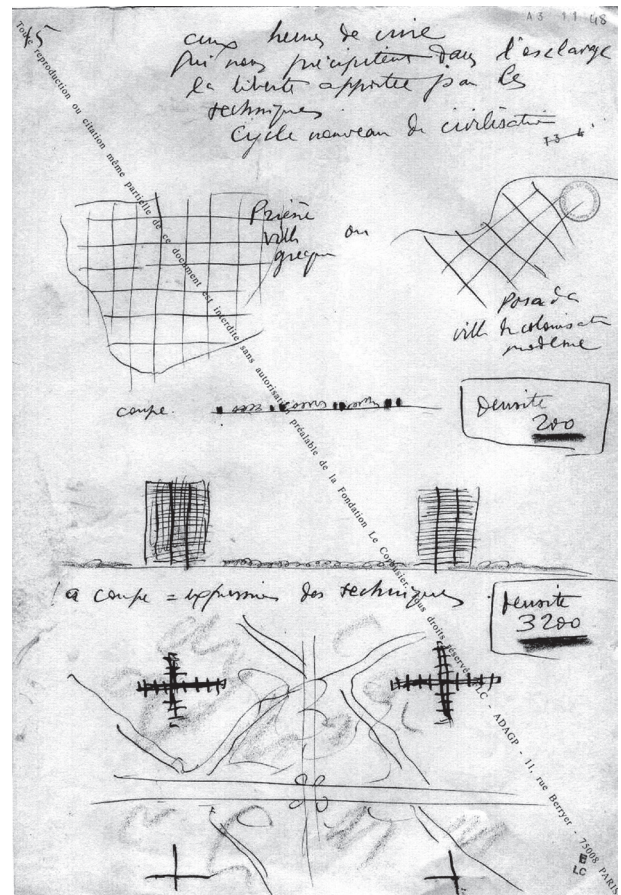 A3 11 48
15
aux heures de crise
qui nous précipitent dans l'esclavage
la liberté apportée par les
techniques
Cycle nouveau de civilisation
Priène
ville
grecque
ou
Posada
ville de colonisation
moderne
coupe.
Densité
200
la coupe = expression des techniques
Densité
3200
Toute reproduction ou citation même partielle de ce document est interdite sans autorisation préalable de la Fondation Le Corbusier. Tous droits réservés FLC - ADAGP - 11, rue Berryer - 75008 PARIS
LC